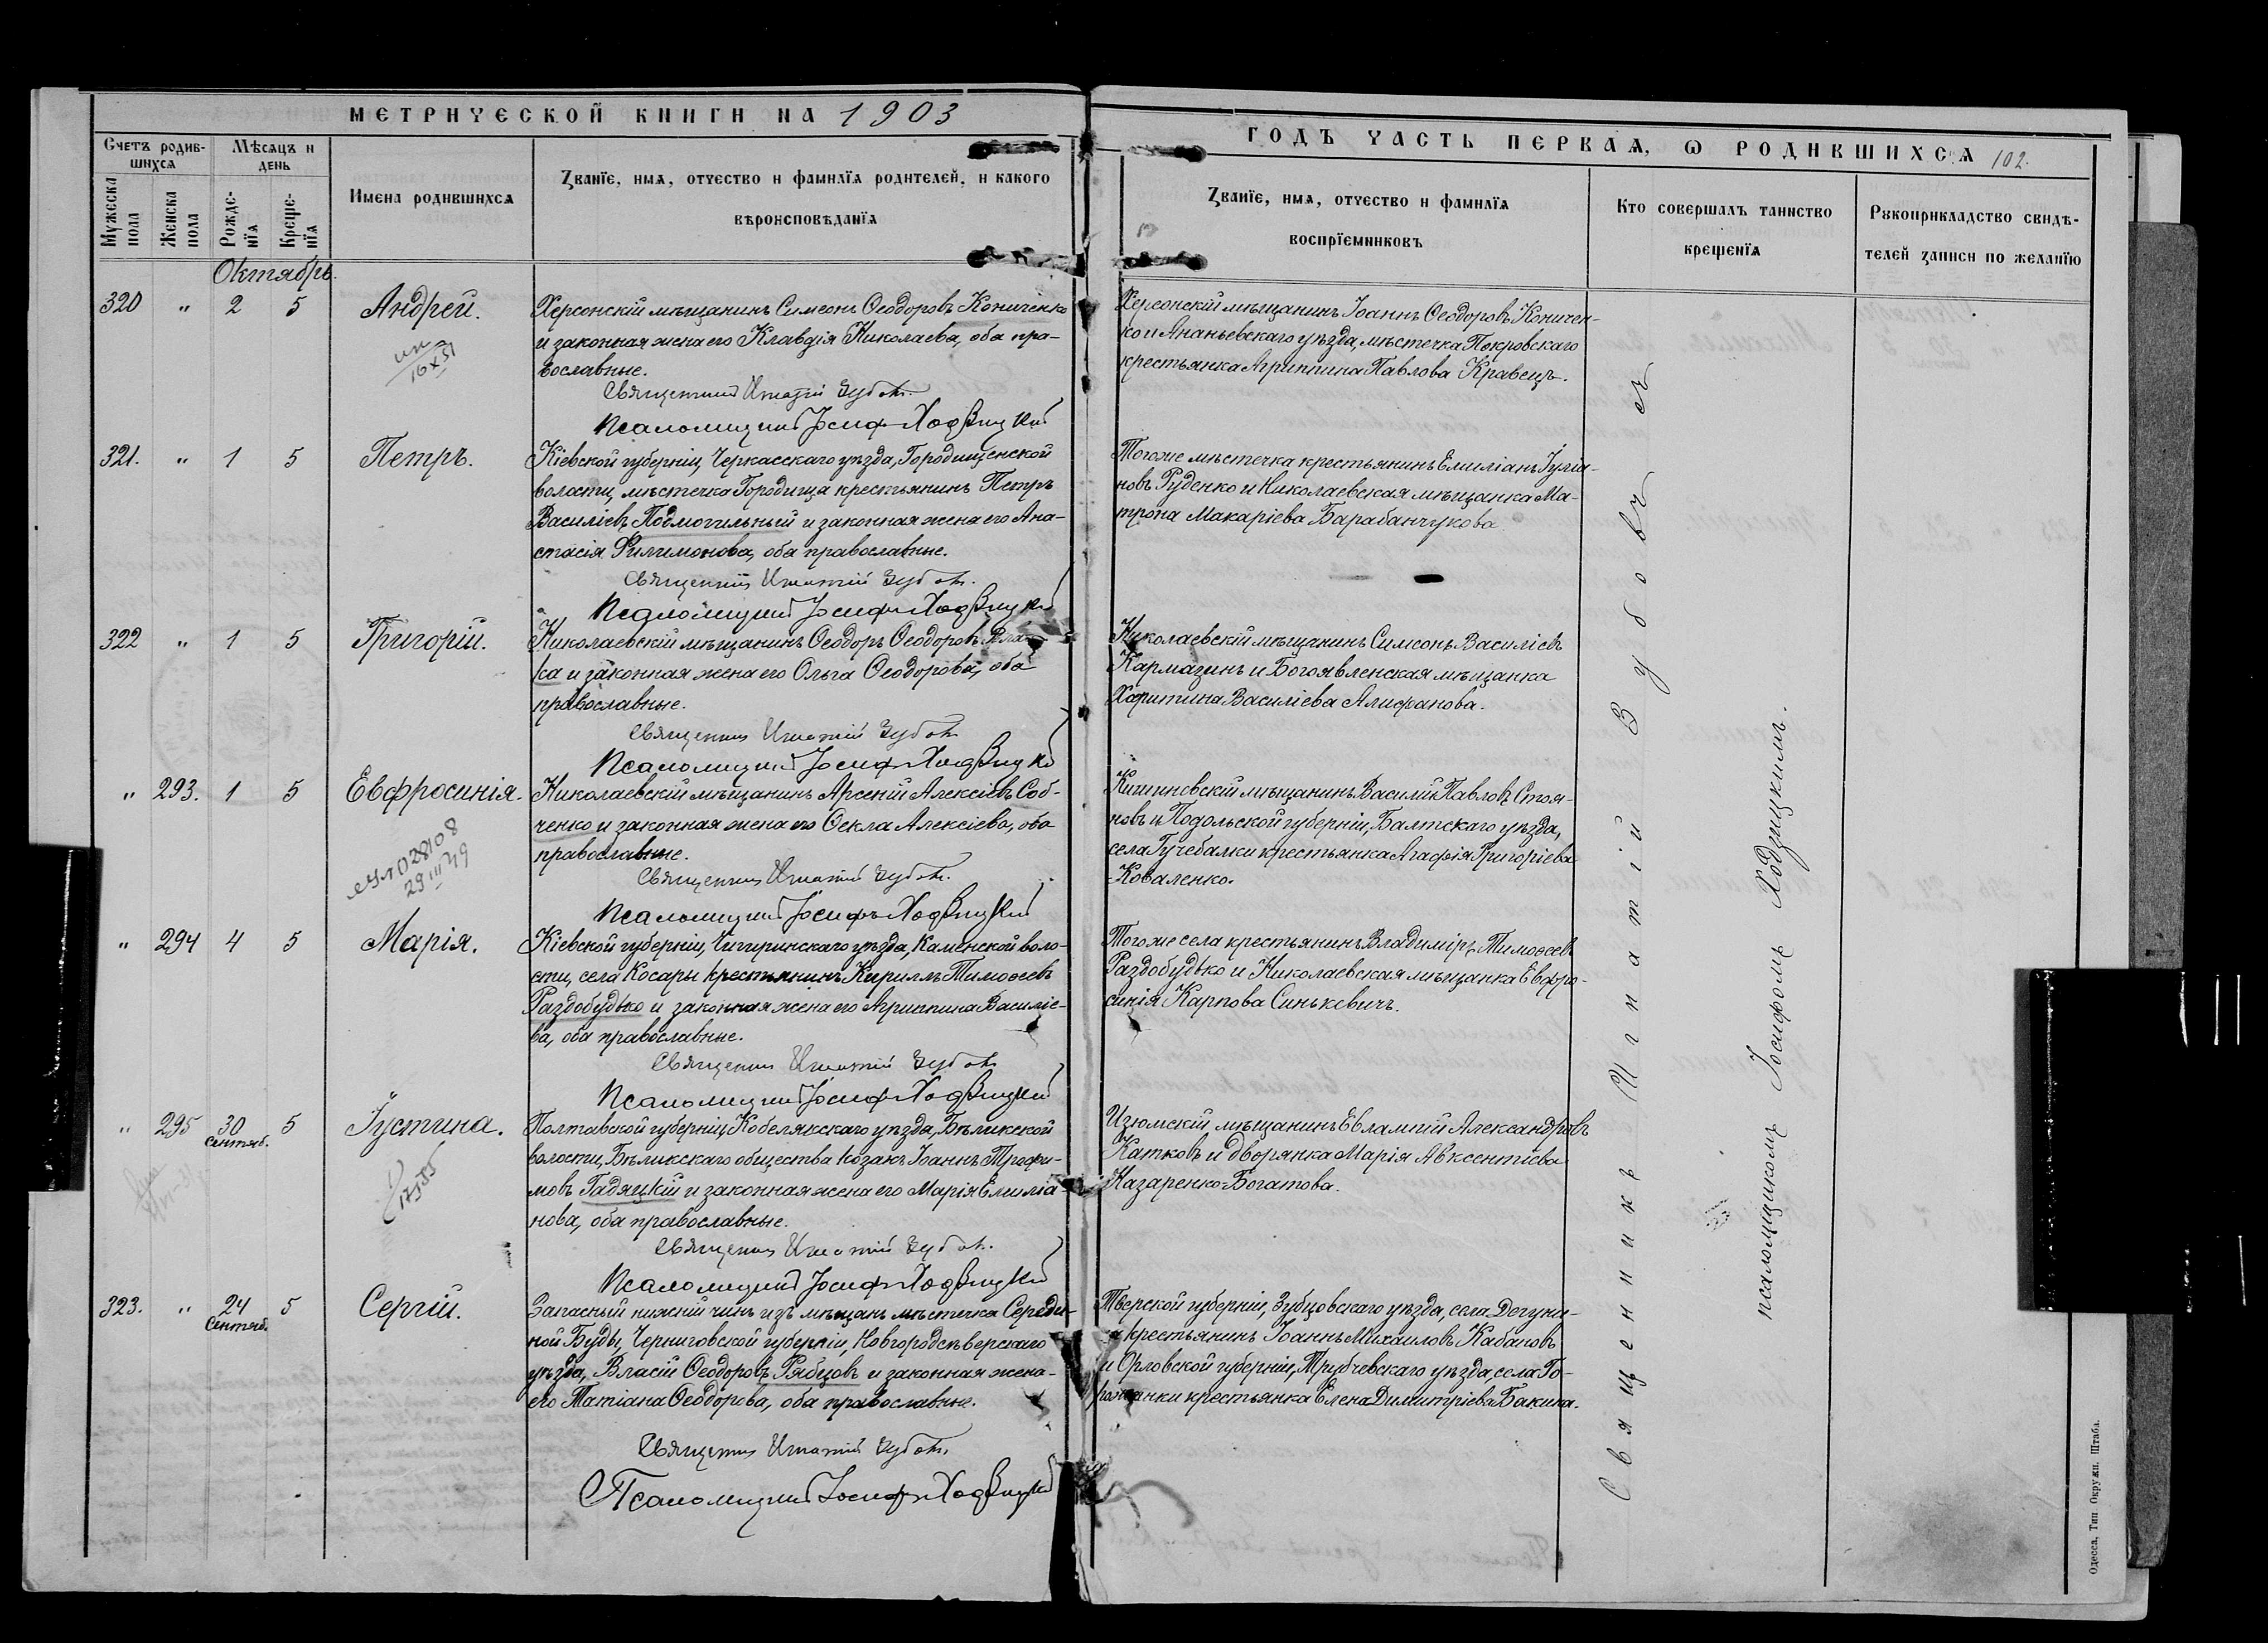 МЕТРИЧЕСКОЙ КНИГИ НА 1903
ГОДЪ ЧАСТЬ ПЕРВАѦ, Ѡ РОДИВШИХСѦ 102.
Счетъ родив-
шихсѧ
Мѣсѧцъ и
день
Мужеска
пола
Женска
пола
Рожде-
нїѧ
Креще-
нїѧ
Имена родившихсѧ
Званїе, имѧ, отчество и фамилїѧ родителей, и какого
вѣроисповѣданїѧ
Званїе, имѧ, отчество и фамилїѧ
воспрїемниковъ
Кто совершалъ таинство
крещенїѧ
Рукоприкладство свидѣ-
телей записи по желанїю
Октябрь.
320 " 2 5 Андрей.
Херсонскій мѣщанинъ Симеонъ Ѳеодоровъ Кониченко
и законная жена его Клавдія Николаева, оба пра-
вославные.
Священникъ Игнатій Зубов
Псаломщикъ Іосифъ Ходзицкій
Херсонскій мѣщанинъ Іоаннъ Ѳеодоровъ Коничен-
ко и Ананьевскаго уѣзда, мѣстечка Покровскаго
крестьянка Агриппина Павлова Кравецъ.
16 X 51
321. " 1 5 Петръ.
Кіевской губерніи, Черкасскаго уѣзда, Городищенской
волости, мѣстечка Городища крестьянинъ Петръ
Василіевъ Подмогильный и законная жена его Ана-
стасія Филимонова, оба православные.
Священникъ Игнатій Зубов
Псаломщикъ Іосифъ Ходзицкій
Тогоже мѣстечка крестьянинъ Емиліанъ Іуліа-
новъ Руденко и Николаевская мѣщанка Ма-
трона Макаріева Барабанчукова
322 " 1 5 Григорій.
Николаевскій мѣщанинъ Ѳеодоръ Ѳеодоровъ
ка и законная жена его Ольга Ѳеодорова, оба
православные.
Священникъ Игнатій Зубов
Псаломщикъ Іосифъ Ходзицкій
Николаевскій мѣщанинъ Симеонъ Василіевъ
Кармазинъ и Богоявленская мѣщанка
Харитина Василіева Алифанова.
" 293. 1 5 Евфросинія.
Николаевскій мѣщанинъ Арсеній Алексіевъ Соб-
ченко и законная жена его Ѳекла Алексіева, оба
православные.
Священникъ Игнатій Зубов
Псаломщикъ Іосифъ Ходзицкій
Кишиневскій мѣщанинъ Василій Павловъ Стоя-
новъ и Подольской губерніи, Балтскаго уѣзда,
села Гучебалки крестьянка Агафія Григоріева
Коваленко.
028108
29 III 49
" 294 4 5 Марія.
Кіевской губерніи, Чигиринскаго уѣзда, Каменской воло-
сти, села Косары крестьянинъ Кириллъ Тимоѳеевъ
Раздобудько и законная жена его Агриппина Василіе-
ва, оба православные.
Священникъ Игнатій Зубов
Псаломщикъ Іосифъ Ходзицкій
Тогоже села крестьянинъ Владиміръ Тимоѳеевъ
Раздобудько и Николаевская мѣщанка Евфро-
синія Карпова Синькевичъ.
" 295 30 Сентяб. 5 Іустина.
Полтавской губерніи, Кобелякскаго уѣзда, Бѣликской
волости, Бѣликскаго общества козакъ Іоаннъ Трофи-
мовъ Гадяцкій и законная жена его Марія Емиліа-
нова, оба православные.
Священникъ Игнатій Зубов
Псаломщикъ Іосифъ Ходзицкій
Изюмскій мѣщанинъ Евлампій Александровъ
Катковъ и дворянка Марія Авксентіева
Назаренко-Богатова.
323. " 24 Сентяб. 5 Сергій.
Запасный нижній чинъ изъ мѣщанъ мѣстечка Середи-
ной Буды, Черниговской губерніи, Новгородсѣверскаго
уѣзда, Власій Ѳеодоровъ Рябцовъ и законная жена
его Татіана Ѳеодорова, оба православные.
Священникъ Игнатій Зубов
Псаломщикъ Іосифъ Ходзицкій
Тверской губерніи, Зубцовскаго уѣзда, села Дегуни-
крестьянинъ Іоаннъ Михаиловъ Кабановъ
и Орловской губерніи, Трубчевскаго уѣзда, села Го-
крестьянка Елена Димитріева Бакина.
Священникъ Игнатій Зубовъ съ
псаломщикомъ Іосифомъ Ходзицкимъ.
Одесса, Тип. Окружн. Штаба.